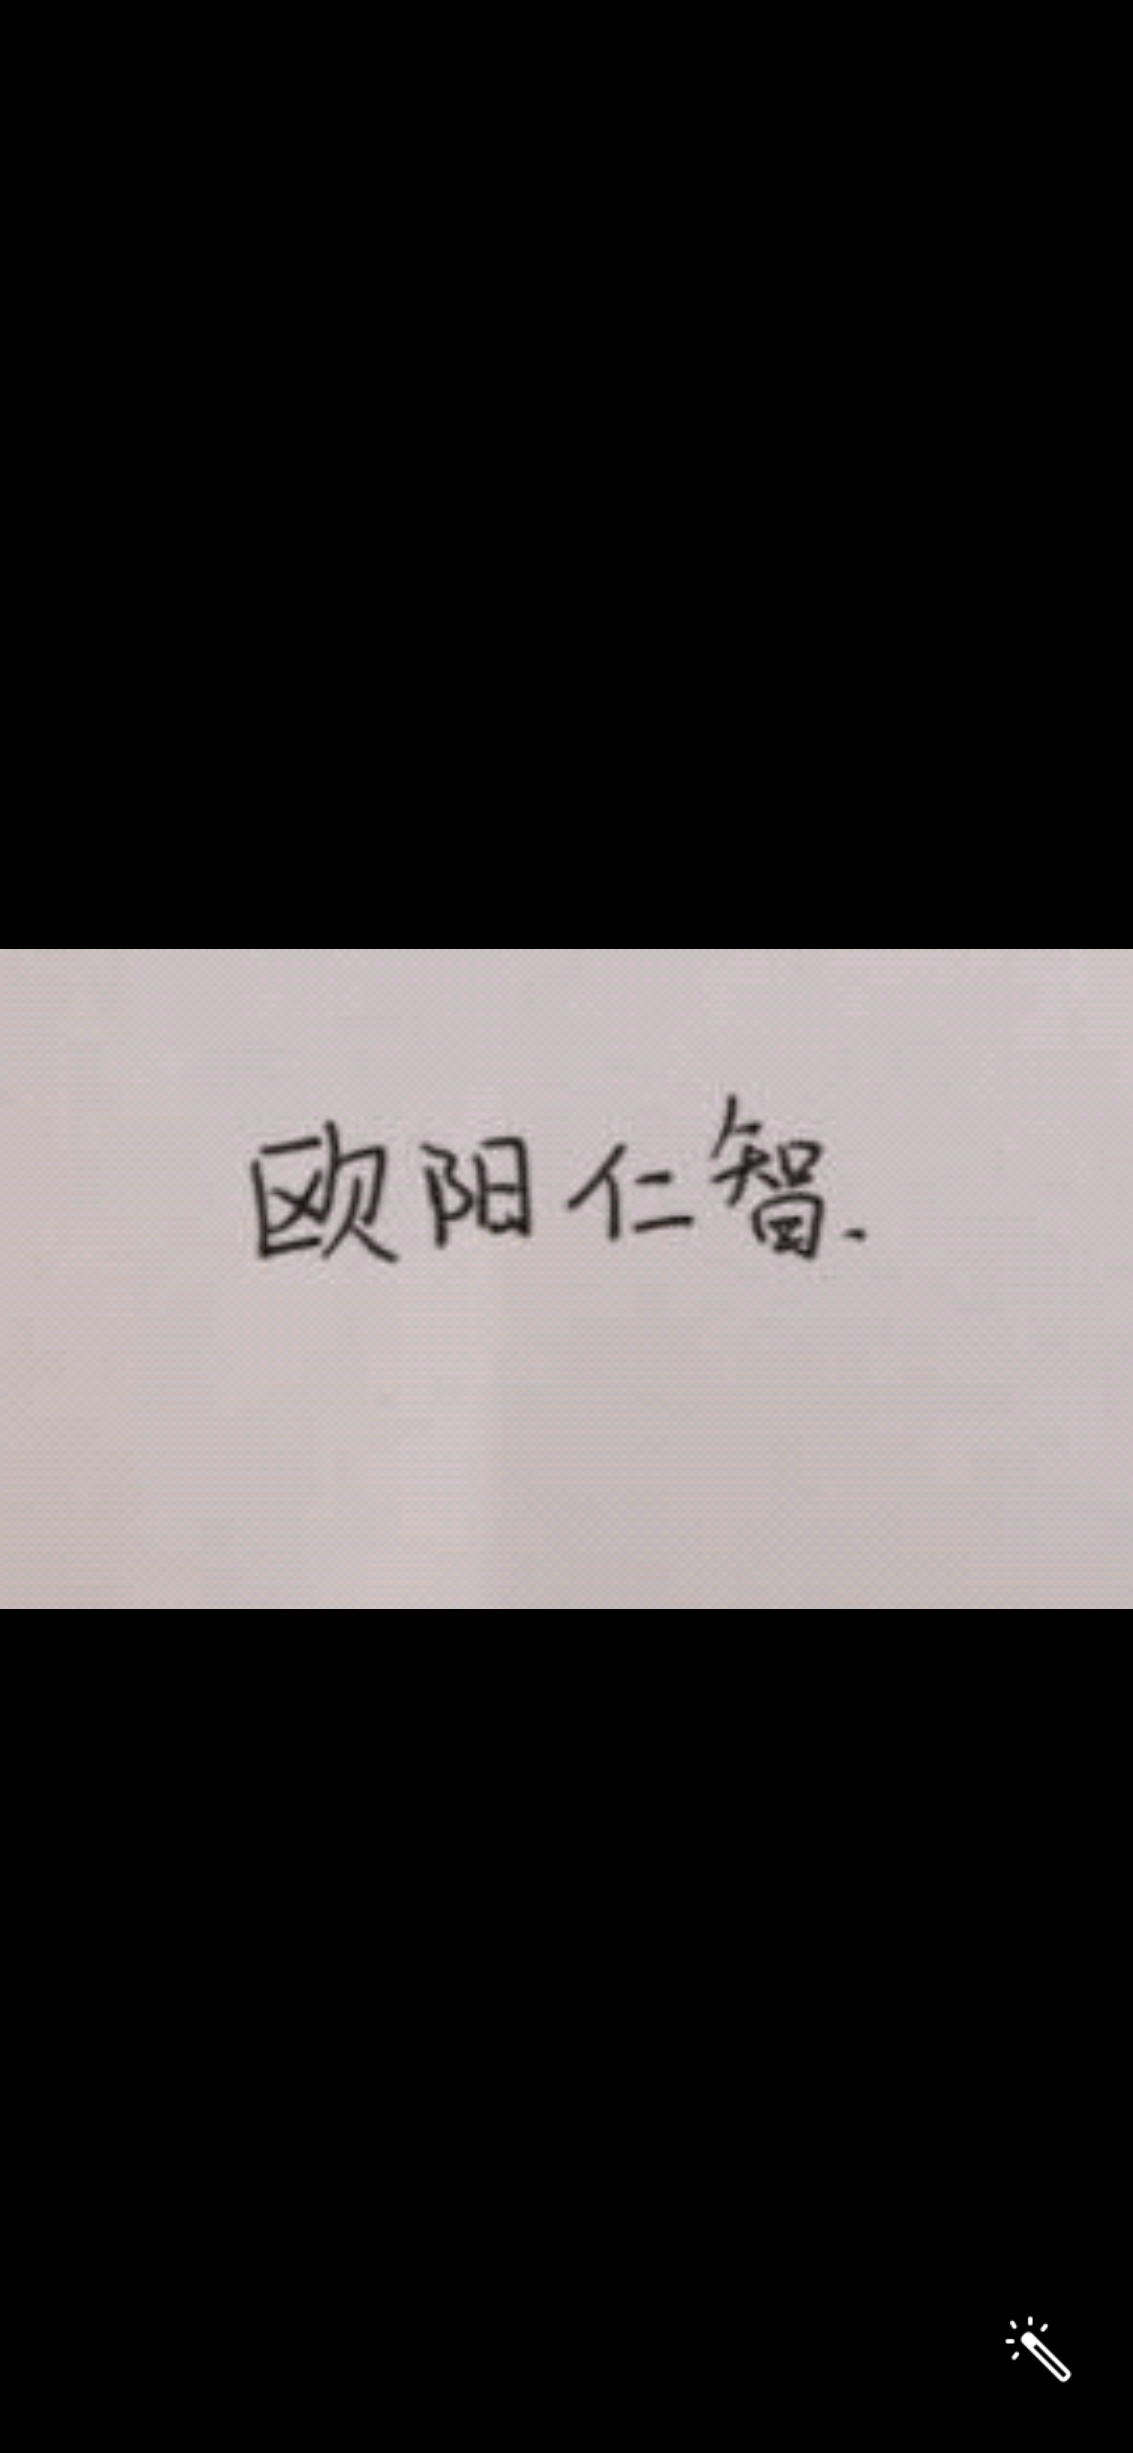 欧阳仁智.